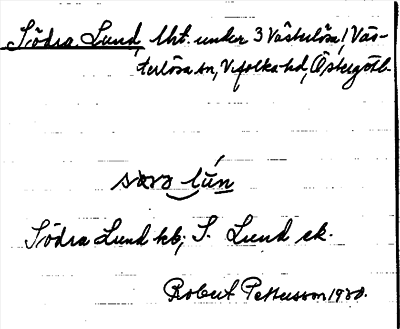 Södra Lund, lht. under 3 Västerlösa, Väs-
terlösa sn, Vifolka hd, Östergötl.
søra lún
Södra Lund kb; S. Lund ek.
Robert Pettersson 1930.